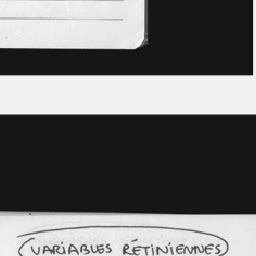 VARIABLES RÉTINIENNES